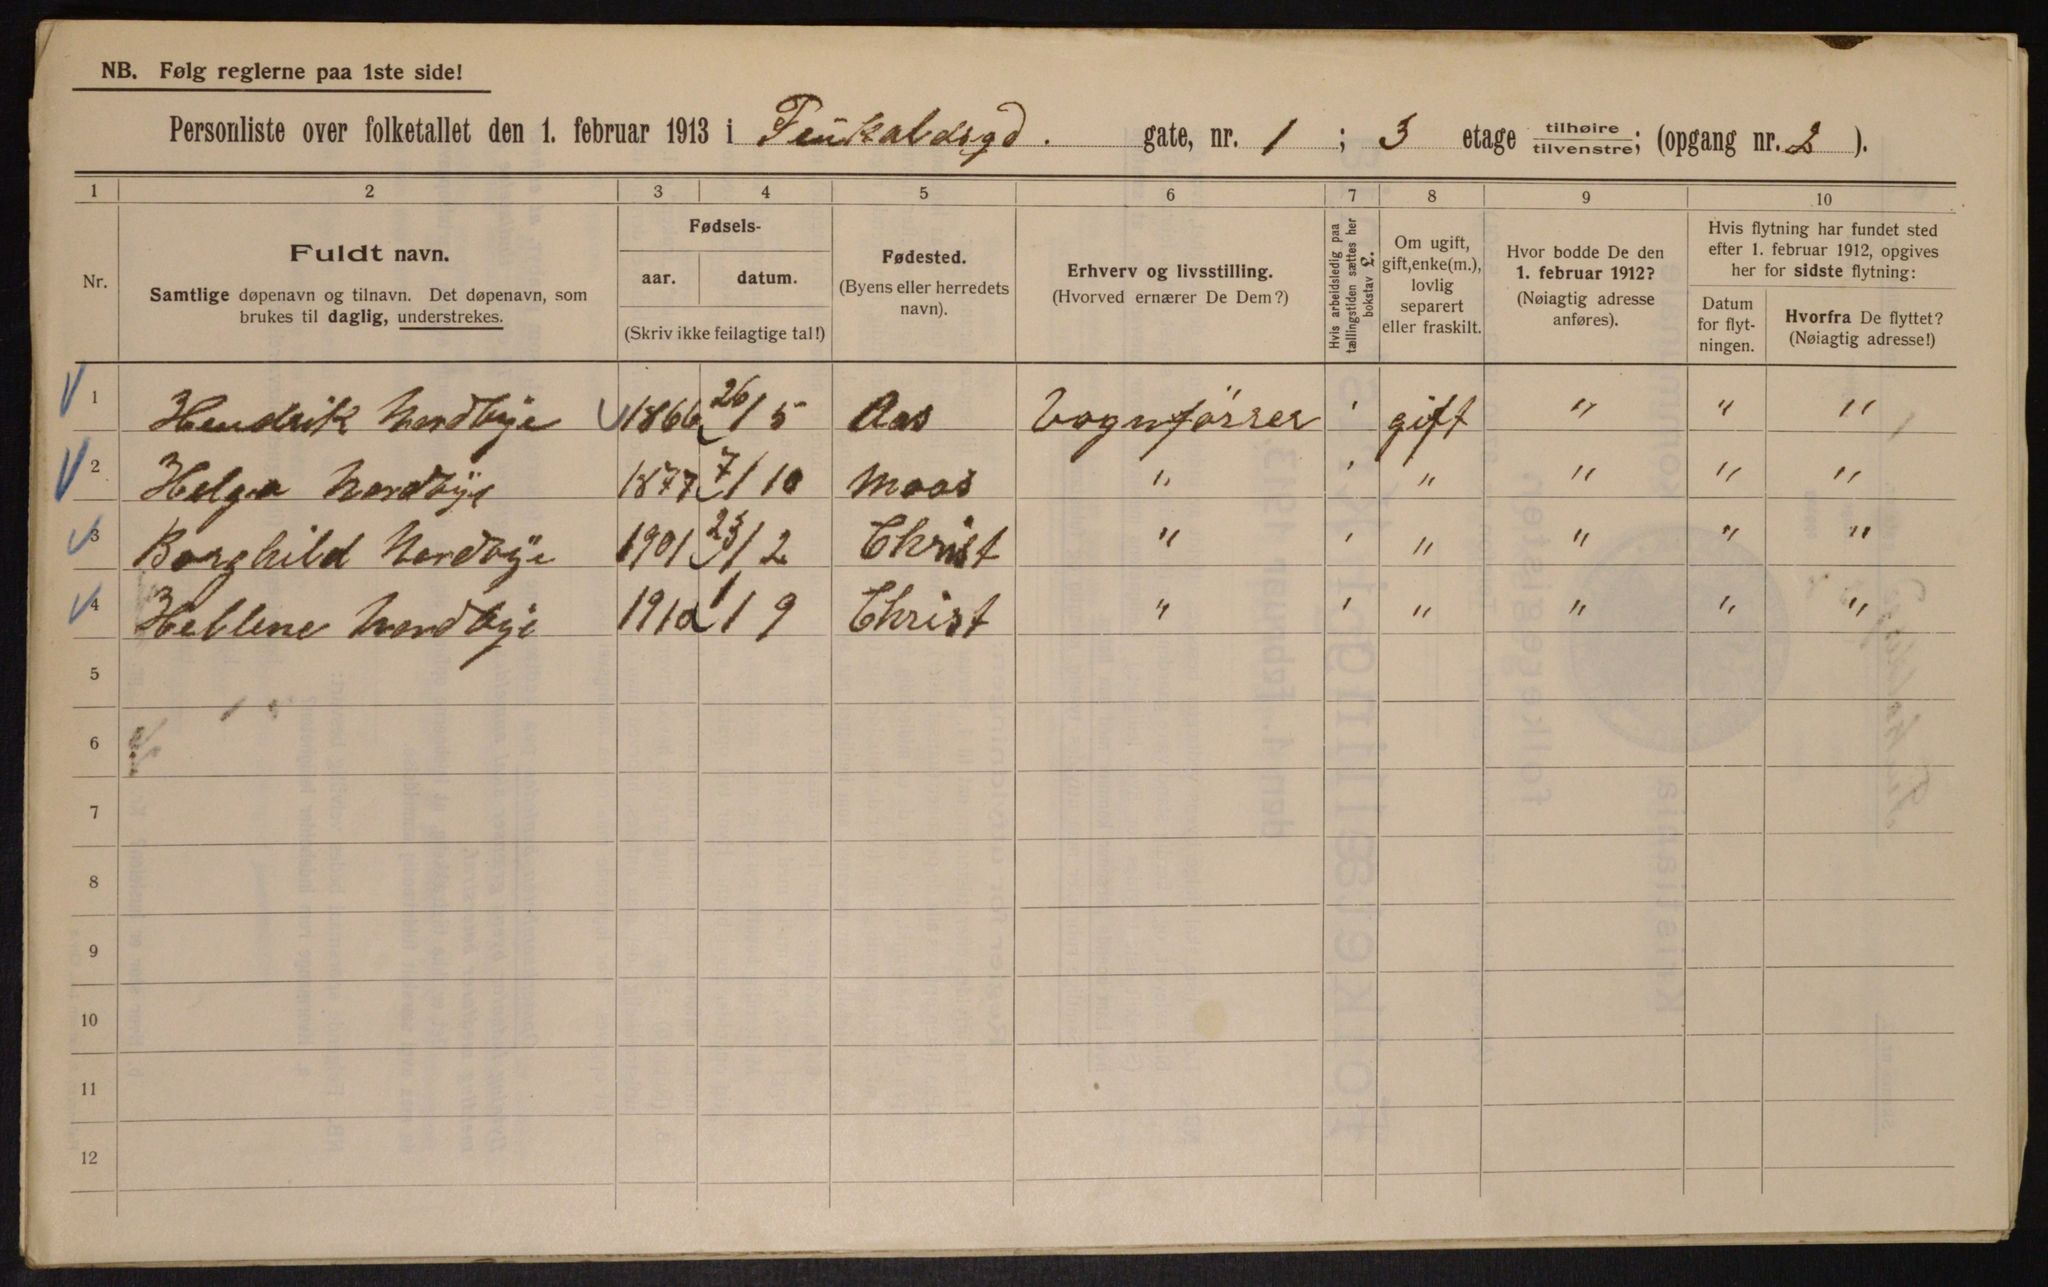 NB. Følg reglerne paa 1ste side!
Personliste over folketallet den 1. februar 1913 i Finkaldsgd. gate, nr. 1 ; 3 etage tilhøire tilvenstre; (opgang nr. 2 ).
1 2 3 4 5 6 7 8 9 10
Nr.
Fuldt navn.
Samtlige døpenavn og tilnavn. Det døpenavn, som
brukes til daglig, understrekes.
Fødsels-
aar. datum.
(Skriv ikke feilagtige tal!)
Fødested.
(Byens eller herredets
navn).
Erhverv og livsstilling.
(Hvorved ernærer De Dem?)
Hvis arbeidsledig paa
tællingstiden sættes her
bokstav L.
Om ugift,
gift, enke(m.),
lovlig
separert
eller fraskilt.
Hvor bodde De den
1. februar 1912?
(Nøiagtig adresse
anføres).
Hvis flytning har fundet sted
efter 1. februar 1912, opgives
her for sidste flytning:
Datum
for flyt-
ningen.
Hvorfra De flyttet?
(Nøiagtig adresse!)
1 Hendrik Nordbye 1866 26/5 Aas Vognfører ' gift " " "
2 Helga Nordbye 1877 7/10 Moss " ' " " " "
3 Borghild Nordbye 1901 23/2 Christ " ' " " " "
4 Hellene Nordbye 1910 1/9 Christ " ' " " " "
5
6
7
8
9
10
11
12